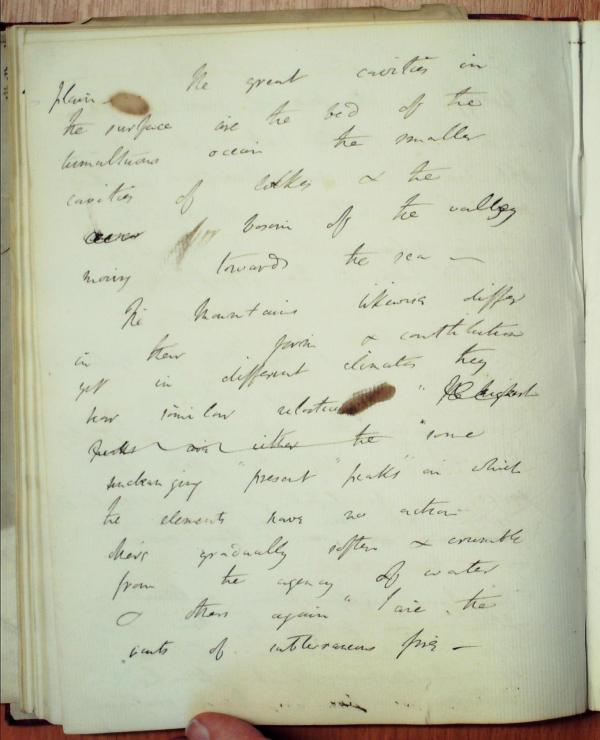 The great cavities in
plain
the surface are the bed of the
tumultuous ocean the smaller
cavities of lakes & the
basin of the valley
moving towards the sea —
The Mountains likewise differ
in their form & constitution
yet in different climates they
have similar relations " The highest
peaks are either the "some
unchanging "present "peaks" on which
the elements have no action
others gradually soften & crumble
from the agency of water
& others again " are the
vents of subterraneous fire —